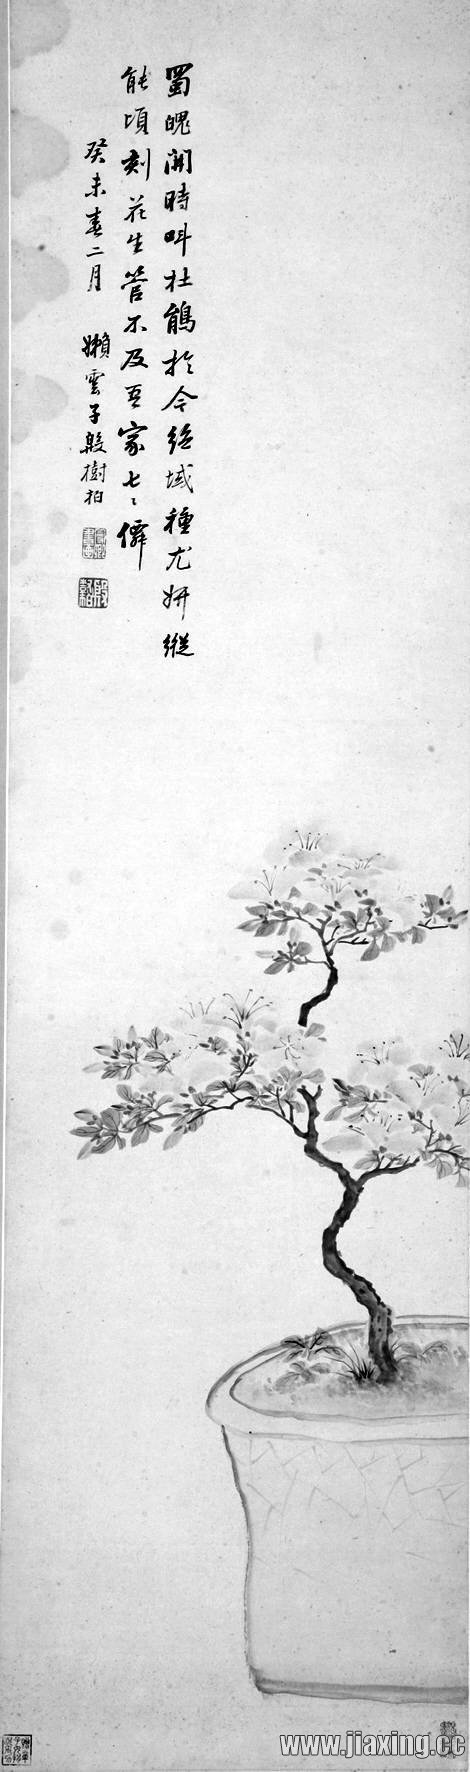 蜀魄開時叫杜鵑於今絶域種尤妍縱
能頃刻花生管不及吾家七〻僊
癸未春二月 嬾雲子殷樹柏
www.jiaxing.cc